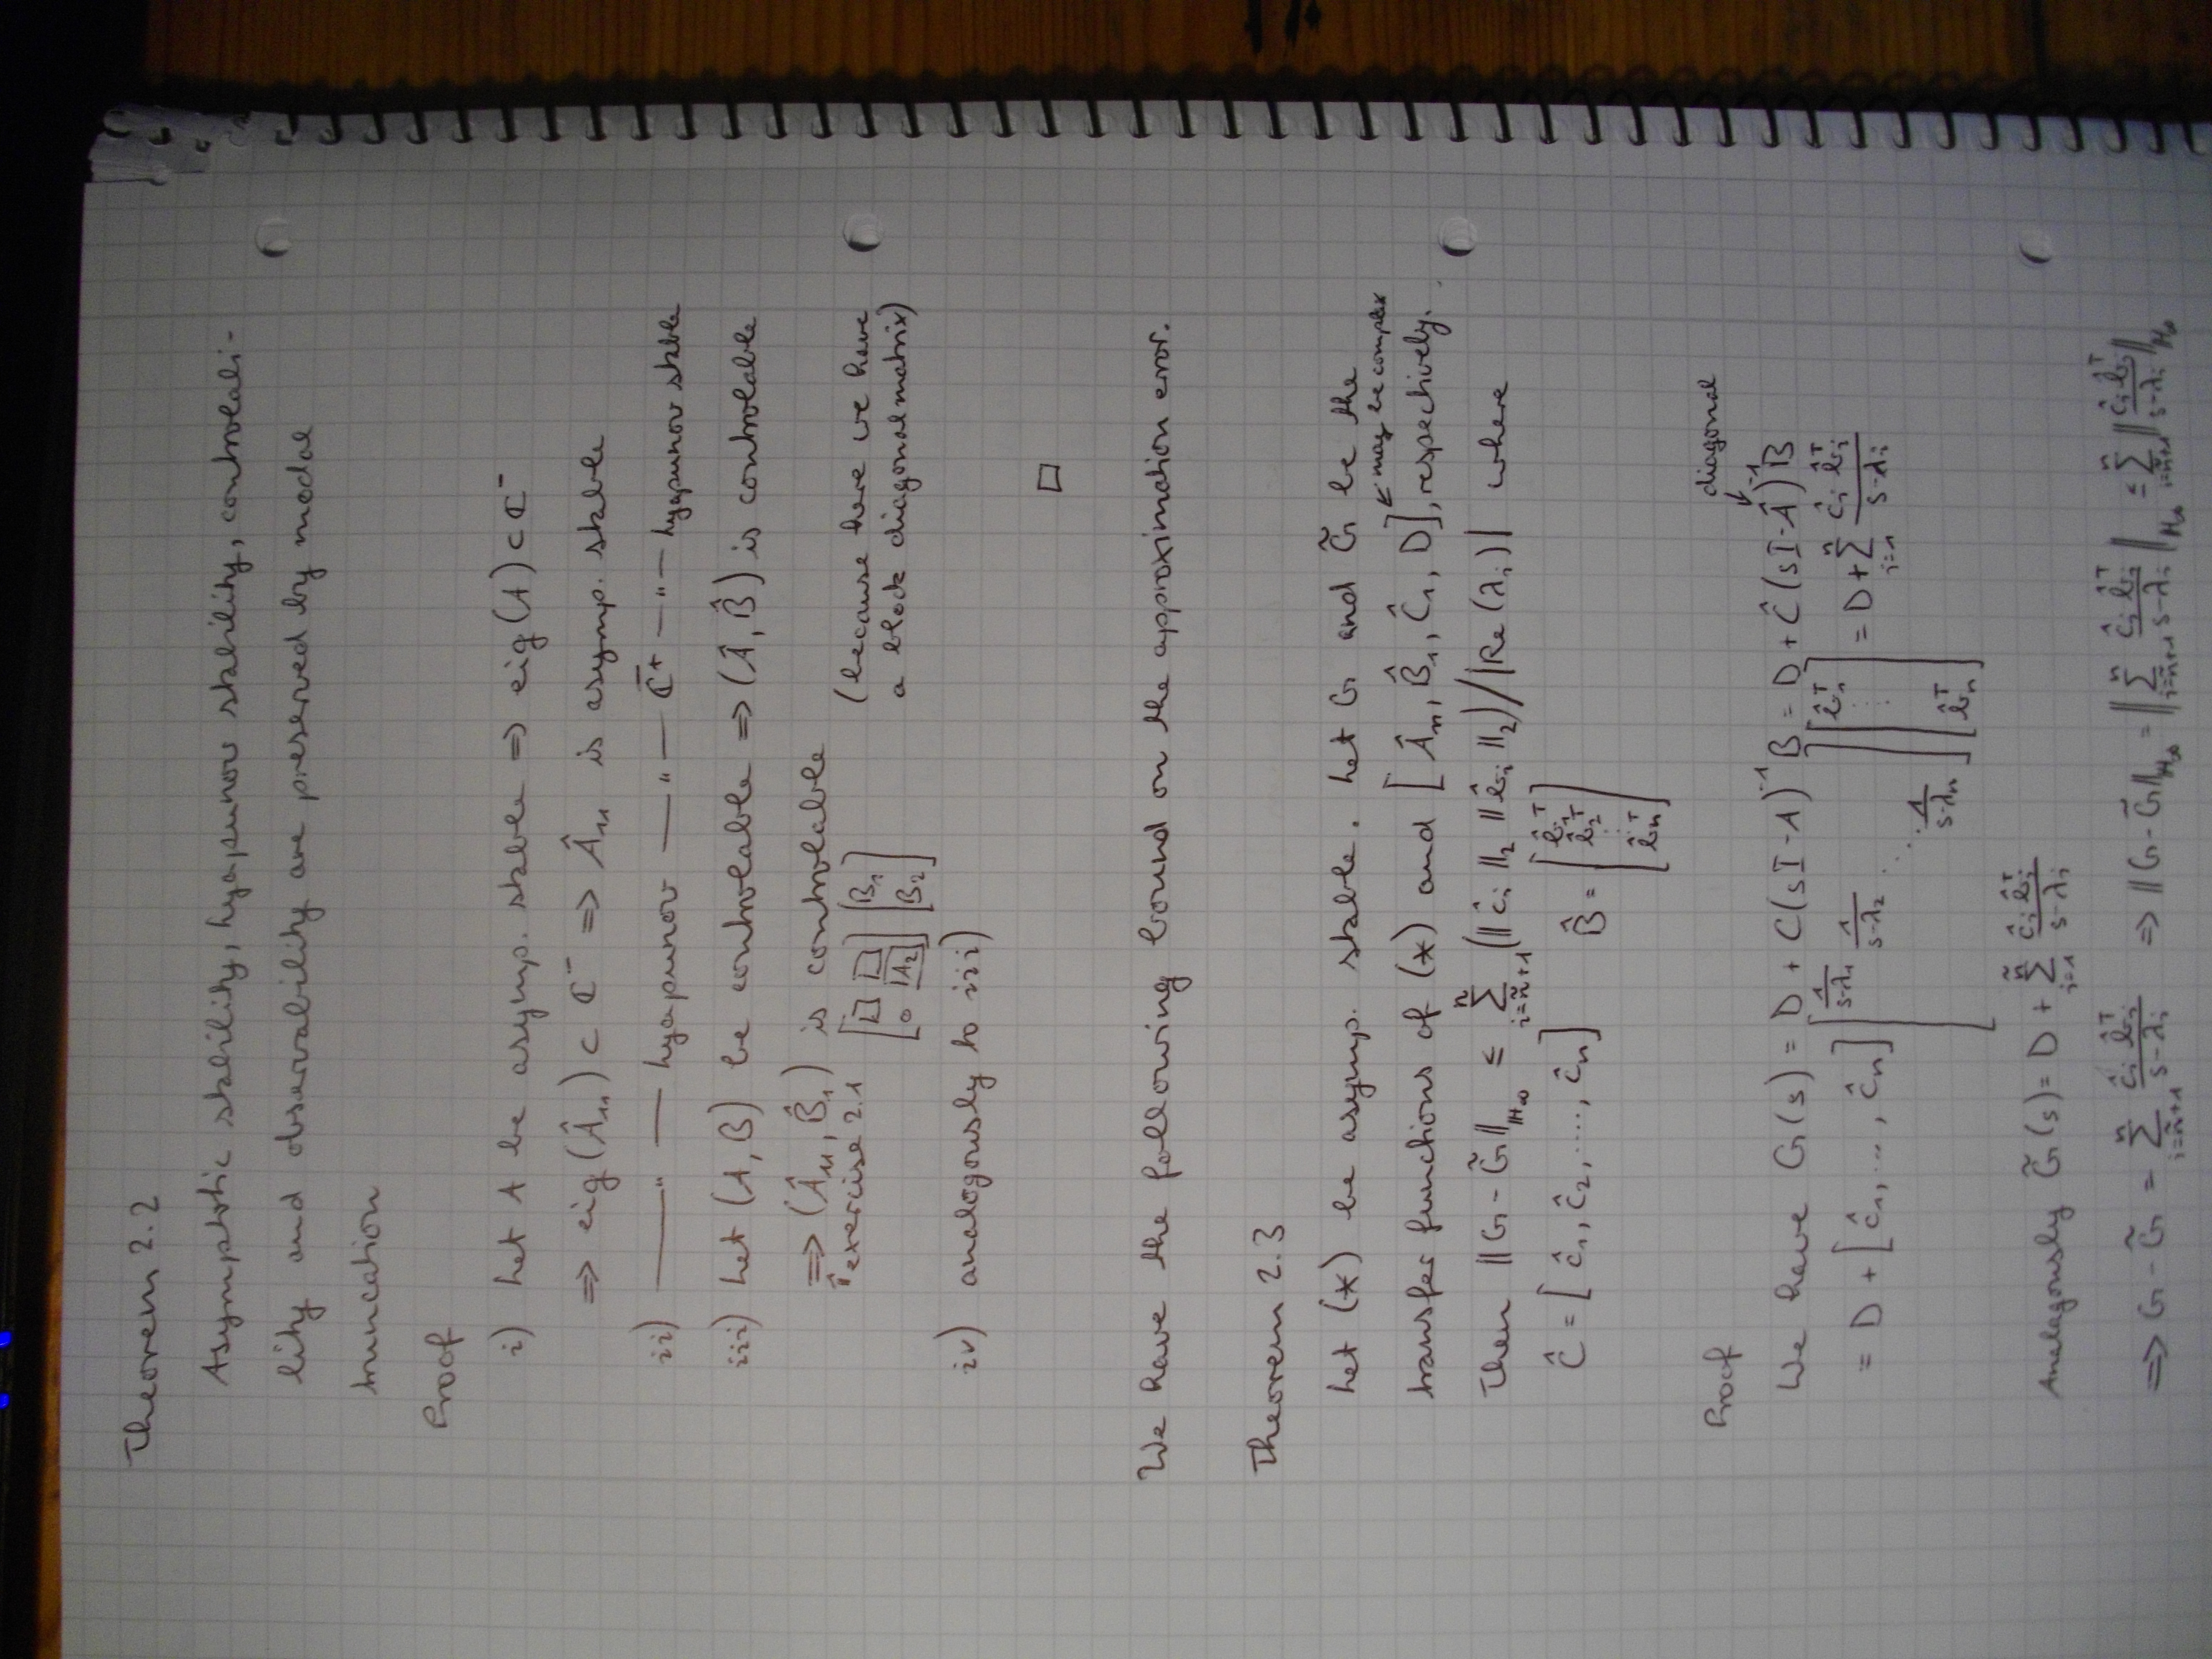 Theorem 2.2
Asymptotic stability, Lyapunov stability, controlabi-
lity and observability are preserved by modal
truncation
Proof
i) Let A be asymp. stable ⇒ eig(A) ⊂ ℂ⁻
⇒ eig(Â₁₁) ⊂ ℂ⁻ ⇒ Â₁₁ is asymp. stable
ii) — " — Lyapunov — " — ℂ̄⁺ — " — Lyapunov stable
iii) Let (A, B) be controlable ⇒ (Â, B̂) is controlable
⇒ (Â₁₁, B̂₁) is controlable (because here we have
↑ exercise 2.1 [□ □; 0 |A₂] [B₁; B₂] a block diagonal matrix)
iv) analogously to iii)
□
We have the following bound on the approximation error.
Theorem 2.3
Let (*) be asymp. stable. Let G and G̃ be the
transfer functions of (*) and [Â₁₁, B̂₁, Ĉ₁, D], respectively. ← may be complex
Then ‖G - G̃‖_H∞ ≤ Σ_{i=ñ+1}^{n} (‖ĉᵢ‖₂ ‖b̂ᵢ‖₂)/|Re(λᵢ)| where
Ĉ = [ĉ₁, ĉ₂, ...., ĉₙ] B̂ = [b̂₁ᵀ; b̂₂ᵀ; ⋮; b̂ₙᵀ]
Proof
diagonal ↓
We have G(s) = D + C(sI - A)⁻¹B = D + Ĉ(sI - Â)⁻¹B̂
= D + [ĉ₁, ..., ĉₙ] [1/(s-λ₁) 1/(s-λ₂) ⋱ 1/(s-λₙ)] [b̂₁ᵀ; ⋮; b̂ₙᵀ] = D + Σ_{i=1}^{n} ĉᵢ b̂ᵢᵀ/(s-λᵢ)
Analogously G̃(s) = D + Σ_{i=1}^{ñ} ĉᵢ b̂ᵢᵀ/(s-λᵢ)
⇒ G - G̃ = Σ_{i=ñ+1}^{n} ĉᵢ b̂ᵢᵀ/(s-λᵢ) ⇒ ‖G - G̃‖_H∞ = ‖Σ_{i=ñ+1}^{n} ĉᵢ b̂ᵢᵀ/(s-λᵢ)‖_H∞ ≤ Σ_{i=ñ+1}^{n} ‖ĉᵢ b̂ᵢᵀ/(s-λᵢ)‖_H∞